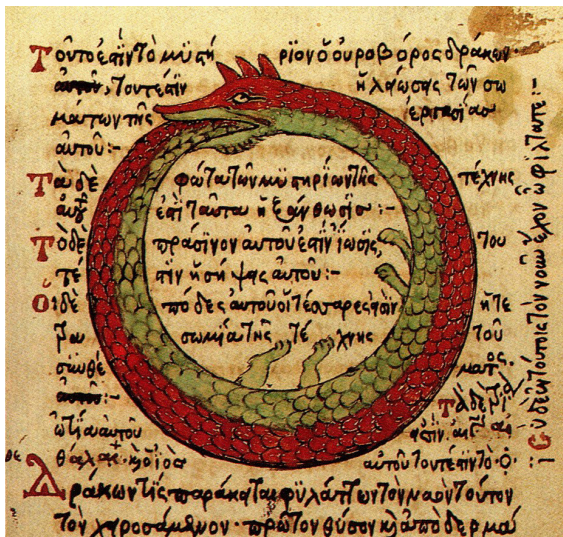 Τοῦτο ἐστὶν τὸ μυστήριον ὁ οὐροβόρος δράκων·
τουτέστιν τῶν σω
μάτων τῆς ἐργασίας
αὐτοῦ:-
Τὰ δὲ φῶτα τῶν μυστηρίων τῆς τέχνης
ἐστὶ ταῦτα ἡ ξάνθωσις:-
Τὸ δὲ πράσινον αὐτοῦ ἐστὶν ἴωσις, του
τέστιν ἡ σήψης αὐτοῦ:-
Οἱ δὲ πόδες αὐτοῦ οἱ τέσσαρες ἡ τε
σωμία τῆς τέχνης τοῦ
συνθέματος.
αὐτοῦ:- Τὰ δὲ τρία
ὠτία αὐτοῦ
αὐτοῦ τουτέστιν τὸ
Δράκων τὶς παράκειται φυλάττων τὸν ναὸν τοῦτον
τὸν χυροσάμενον· πρῶτον θύσον καὶ ἀποδερμά
Σὺ δὲ ἐν τούτοις τὸν νοῦν ἔχον ὦ φίλτατε:-